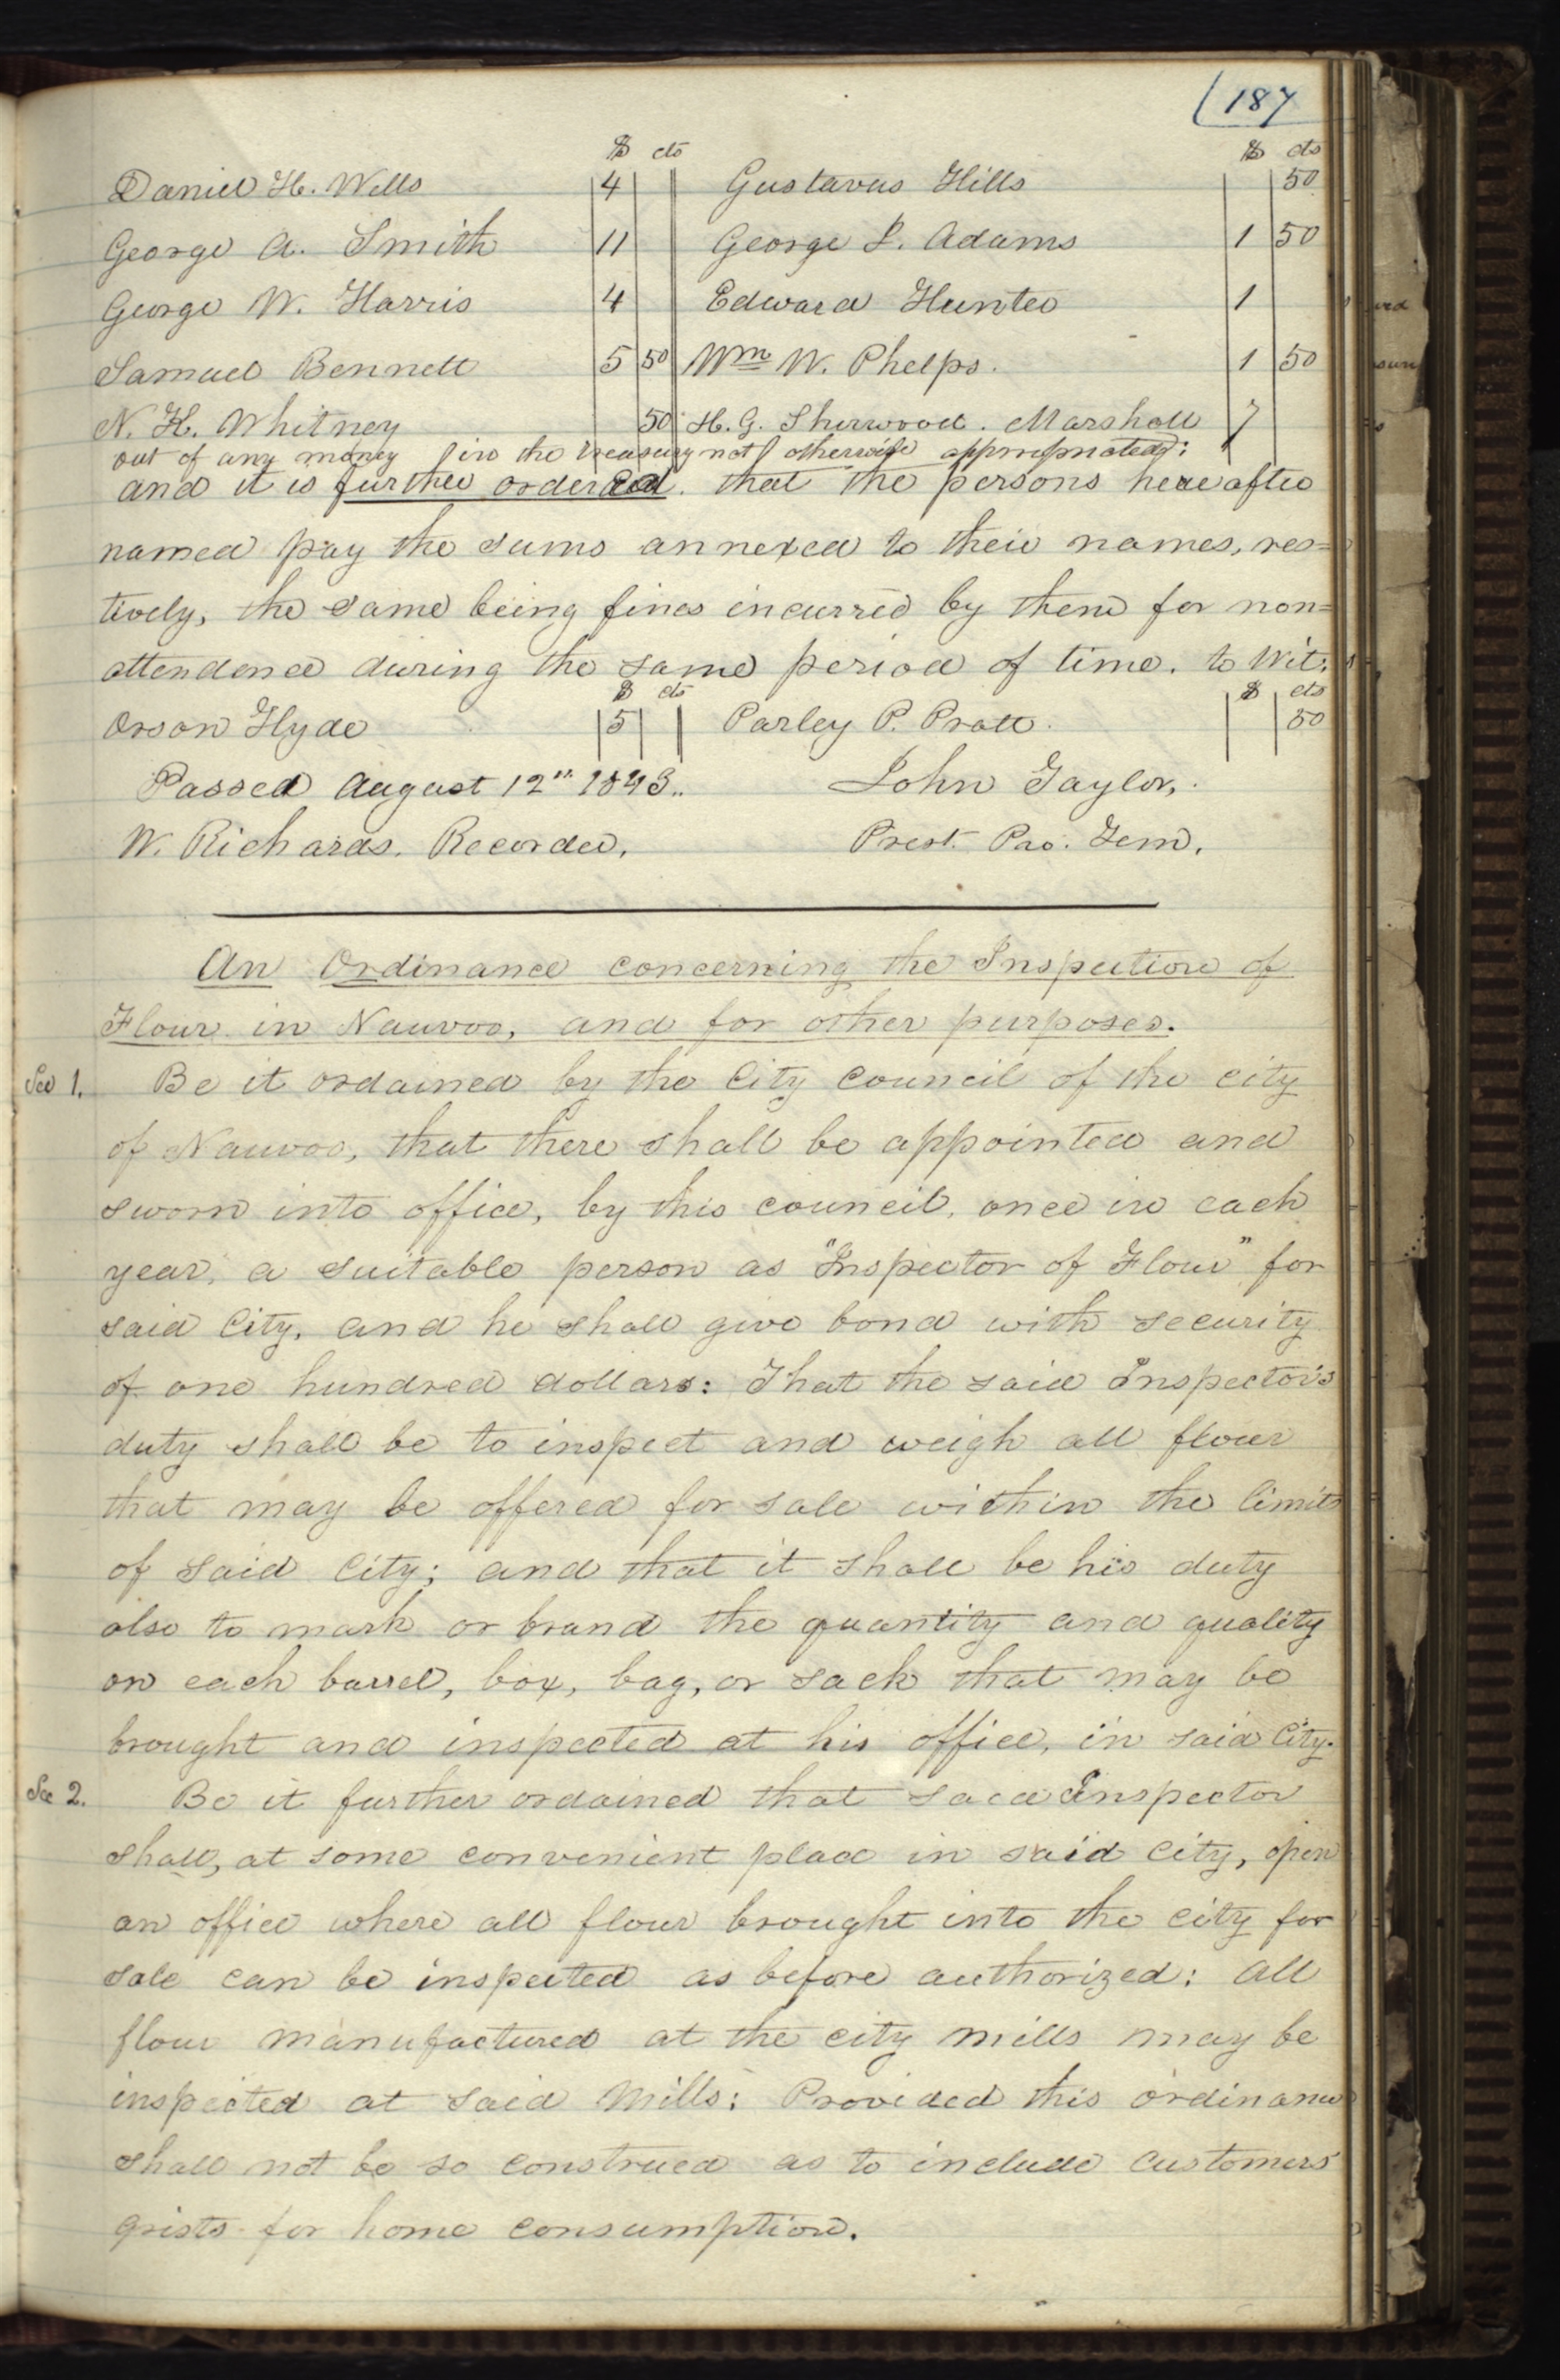 (187
$ cts $ cts
Daniel H. Wells 4 Gustavus Hills 50
George A. Smith 11 George J. Adams 1 50
George W. Harris 4 Edward Hunter 1
Samuel Bennett 5 50 Wm W. Phelps. 1 50
N. K. Whitney 50 H. G. Sherwood. Marshall 7
out of any money in the treasury not otherwise appropriated;
and it is further ordered. that the persons hereafter
named pay the sums annexed to their names, res=
tively, the same being fines incurred by them for non=
attendence during the same period of time. to Wit;
$ cts $ cts
Orson Hyde 5 Parley P. Pratt. 50
Passed August 12th 1843. John Taylor,
W. Richards. Recorder, Prest. Pro. Tem,
An Ordinance concerning the Inspection of
Flour in Nauvoo, and for other purposes.
Sec 1. Be it ordained by the City Council of the city
of Nauvoo, that there shall be appointed and
sworn into office, by this council, once in each
year, a suitable person as "Inspector of Flour" for
said City. and he shall give bond with security
of one hundred dollars: That the said Inspector's
duty shall be to inspect and weigh all flour
that may be offered for sale within the limits
of said City; and that it shall be his duty
also to mark or brand the quantity and quality
on each barrel, box, bag, or sack that may be
brought and inspected at his office, in said City.
Sec 2. Be it further ordained that said Inspector
shall, at some convenient place in said City, open
an office where all flour brought into the city for
sale can be inspected as before authorized: all
flour manufactured at the city mills may be
inspected at said Mills: Provided this ordinance
shall not be so construed as to include customers
grists for home consumption.